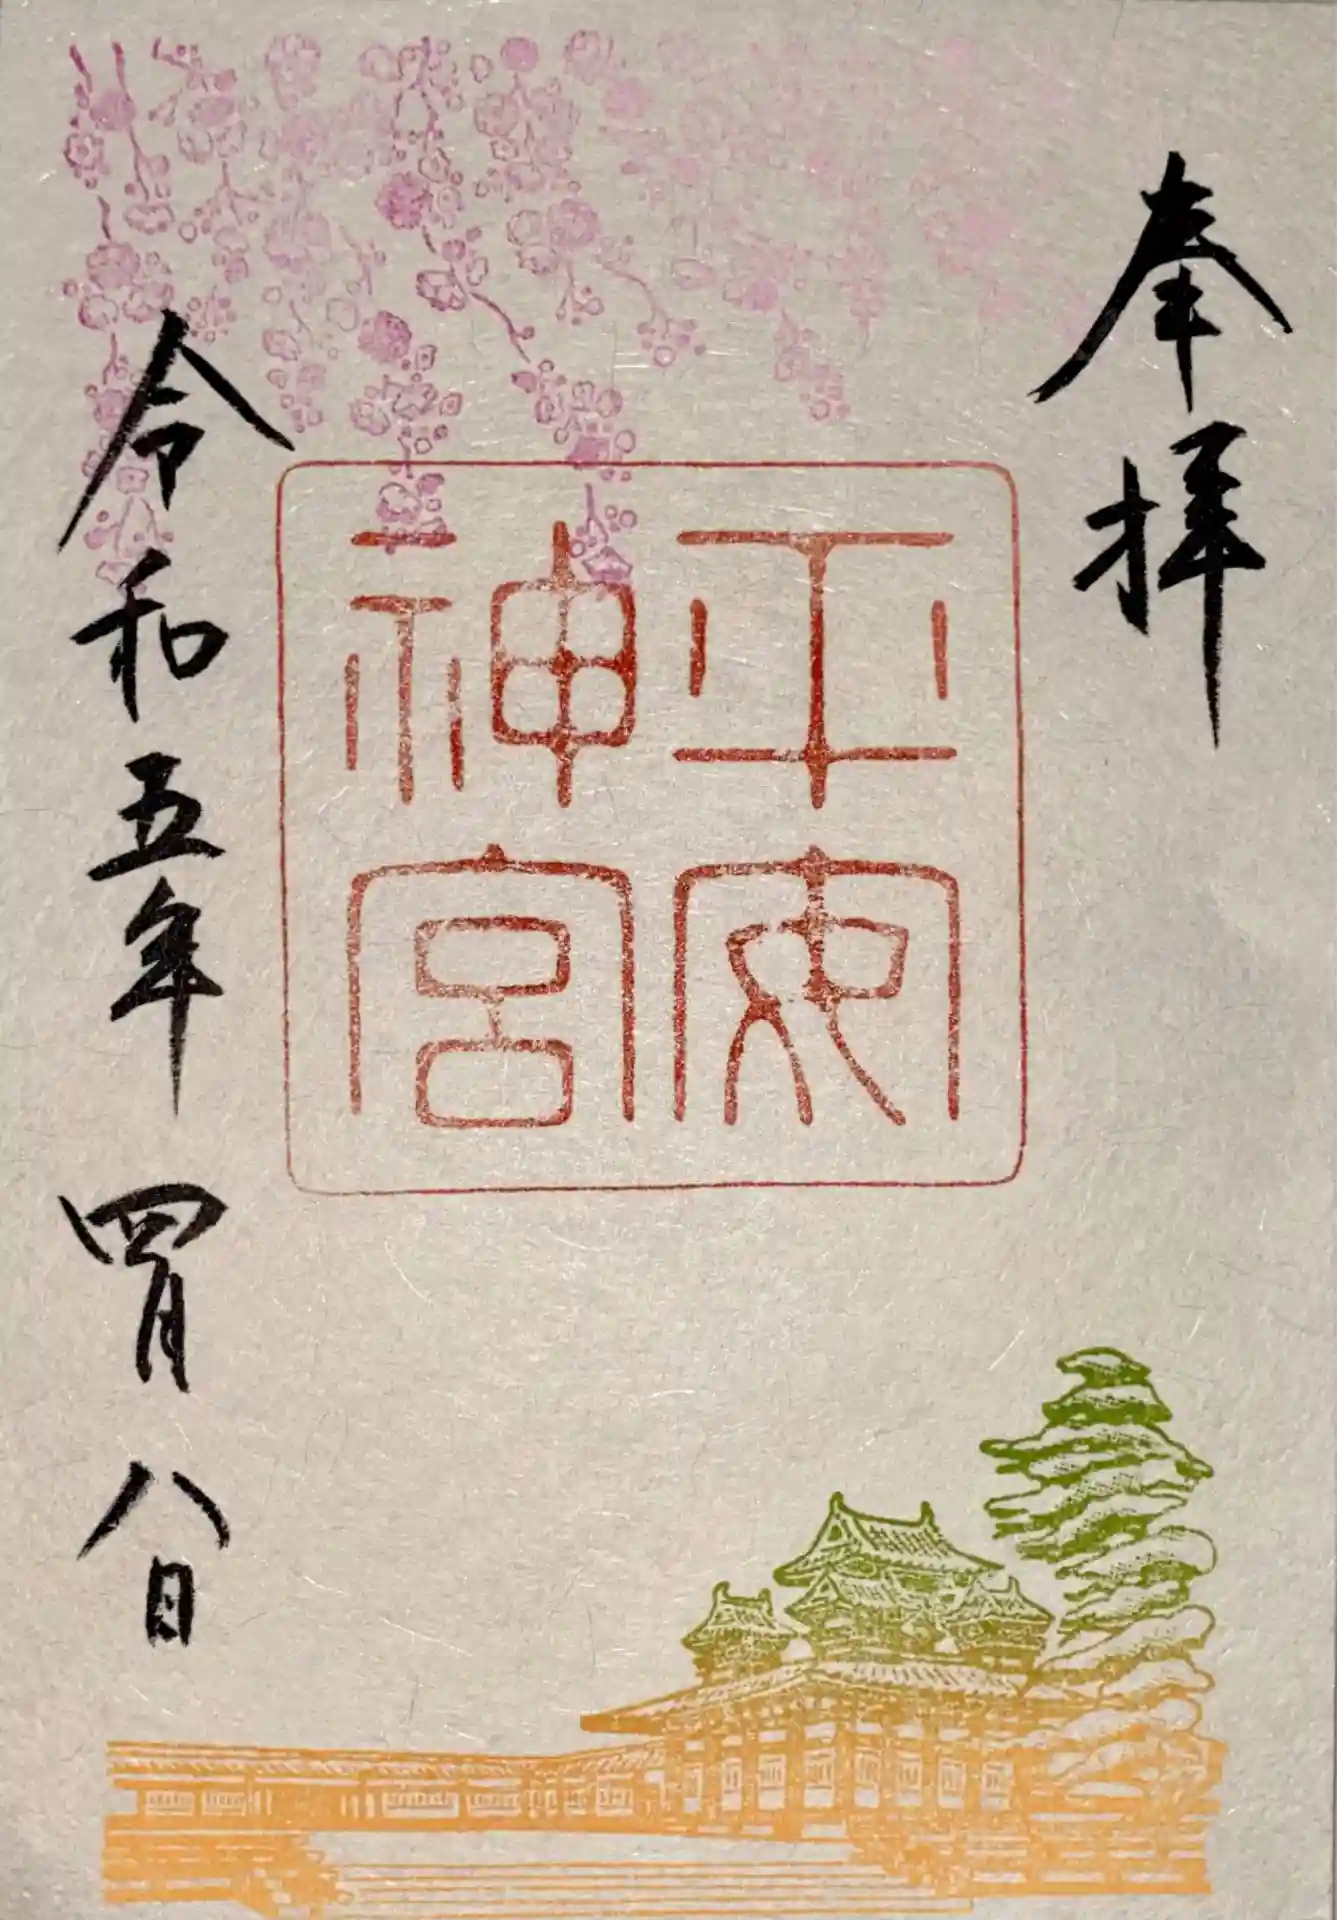 奉拝
平安
神宮
令和五年 四月 八日